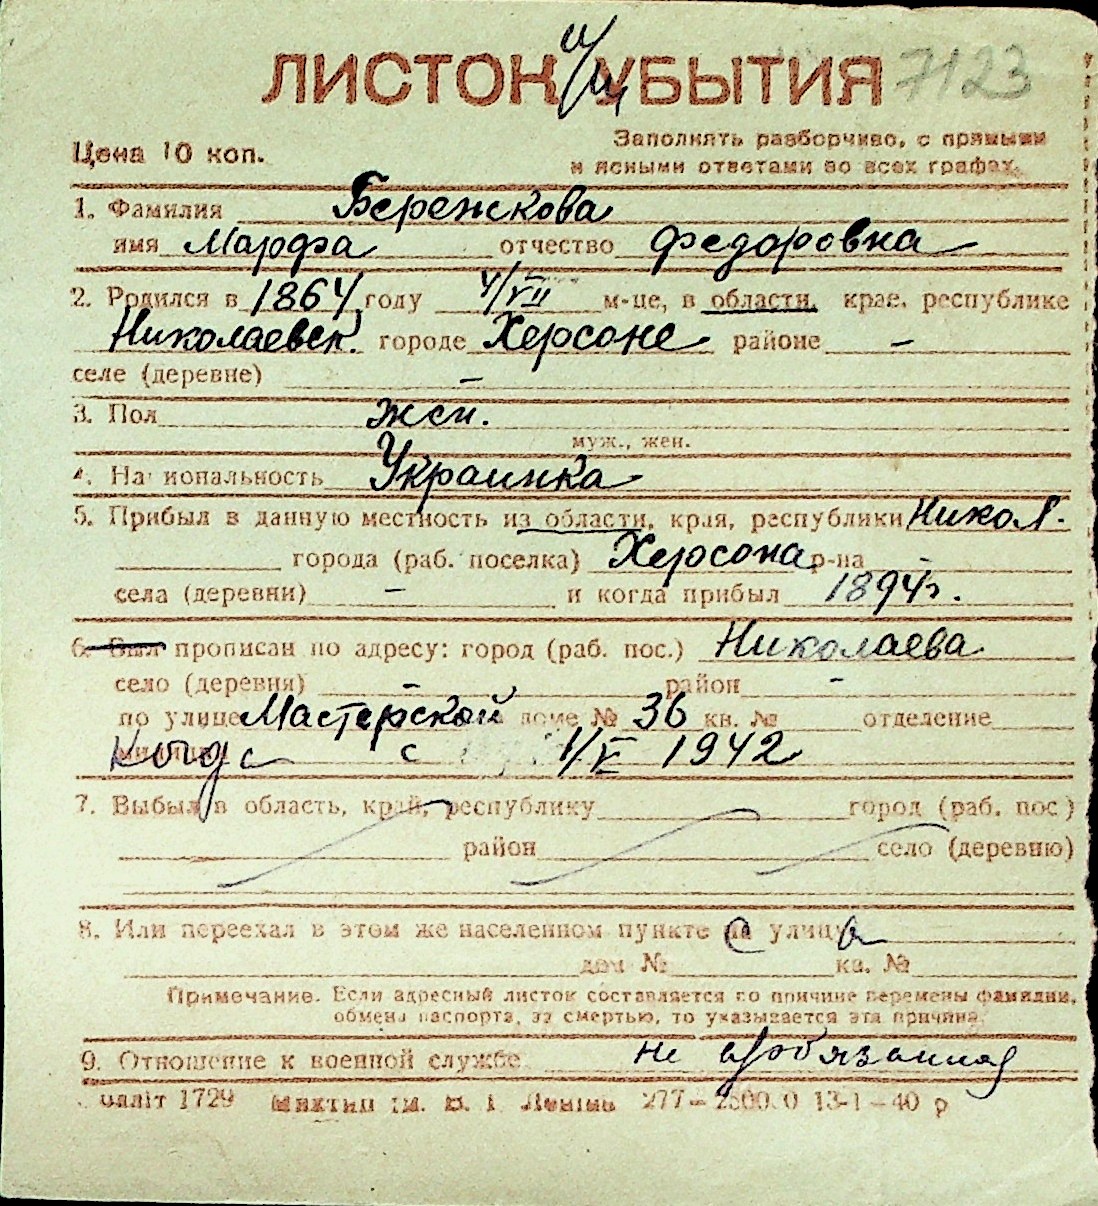 ЛИСТОК УБЫТИЯ 7123
Цена 10 коп.
Заполнять разборчиво, с прямыми
и ясными ответами во всех графах.
1. Фамилия Бережкова
имя Марфа отчество Федоровна
2. Родился в 1864 году 4/VII м-це, в области, крае, республике
Николаевск. городе Херсоне районе –
селе (деревне) –
3. Пол жен.
муж., жен.
4. Национальность Украинка
5. Прибыл в данную местность из области, края, республики Никол.
города (раб. поселка) Херсона р-на –
села (деревни) – и когда прибыл 1894г.
6. Был прописан по адресу: город (раб. пос.) Николаева
село (деревня) – район –
по улице Мастерской доме № 36 кв. № отделение
милиции с 1/V 1942
7. Выбыл в область, край, республику город (раб. пос)
район село (деревню)
8. Или переехал в этом же населенном пункте на улицу
дом № кв. №
Примечание. Если адресный листок составляется по причине перемены фамилии,
обмена паспорта, за смертью, то указывается эта причина.
9. Отношение к военной службе не
1729 им. В. І. Леніна 277– 13-1–40 р